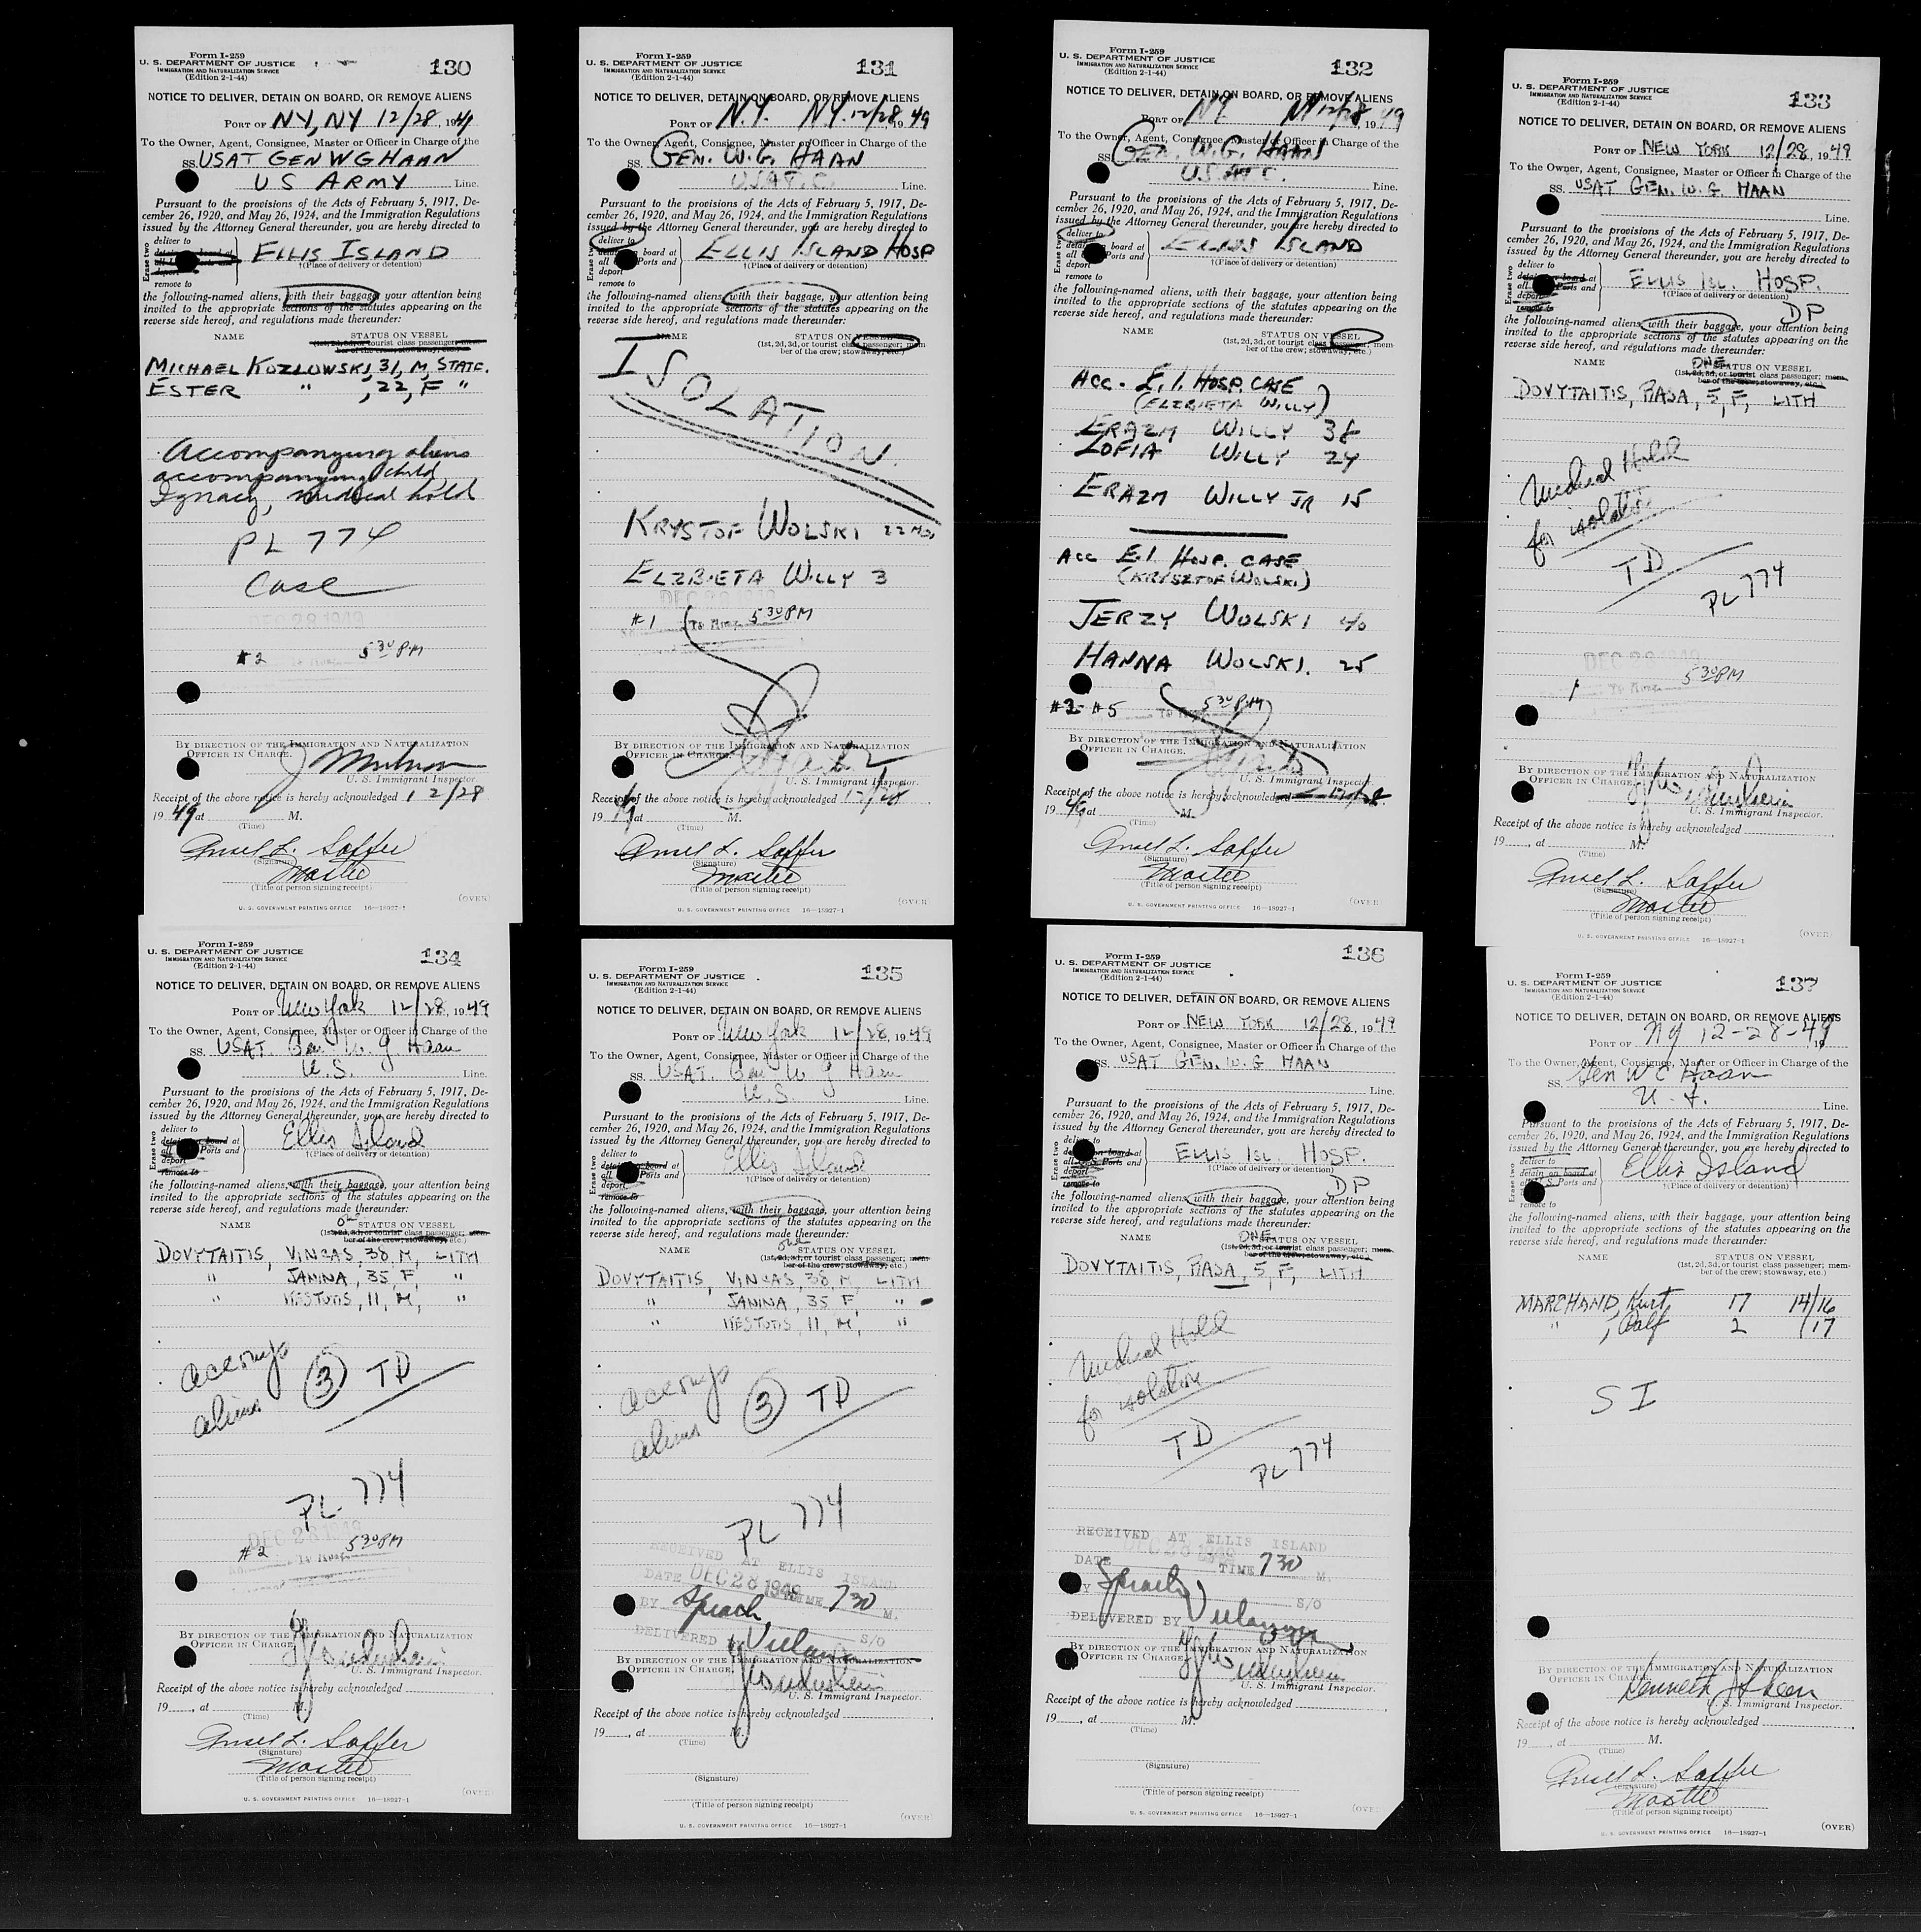 Form I-259
U. S. DEPARTMENT OF JUSTICE
IMMIGRATION AND NATURALIZATION SERVICE
(Edition 2-1-44)
130
NOTICE TO DELIVER, DETAIN ON BOARD, OR REMOVE ALIENS
PORT OF NY, NY 12/28, 19
To the Owner, Agent, Consignee, Master or Officer in Charge of the
SS. USAT GEN WG HAAN
US ARMY Line.
Pursuant to the provisions of the Acts of February 5, 1917, De-
cember 26, 1920, and May 26, 1924, and the Immigration Regulations
issued by the Attorney General thereunder, you are hereby directed to
Erase two
deliver to
ELLIS ISLAND
†(Place of delivery or detention)
deport
remove to
the following-named aliens, with their baggage, your attention being
invited to the appropriate sections of the statutes appearing on the
reverse side hereof, and regulations made thereunder:
NAME STATUS ON VESSEL
(1st, 2d, 3d, or tourist class passenger; mem-
ber of the crew; stowaway, etc.)
MICHAEL KOZLOWSKI, 31, M, STATE.
ESTER " , 22, F "
Accompanying aliens
accompanying child
Ignacy, medical hold
PL 774
Case
DEC 28 1949
#2 5 30 PM
BY DIRECTION OF THE IMMIGRATION AND NATURALIZATION
OFFICER IN CHARGE.
U. S. Immigrant Inspector.
Receipt of the above notice is hereby acknowledged 12/28
19 49 at M.
(Time)
Ansel L. Saffer
(Signature)
Master
(Title of person signing receipt)
(OVER)
U. S. GOVERNMENT PRINTING OFFICE 16—18927-1
Form I-259
U. S. DEPARTMENT OF JUSTICE
IMMIGRATION AND NATURALIZATION SERVICE
(Edition 2-1-44)
131
NOTICE TO DELIVER, DETAIN ON BOARD, OR REMOVE ALIENS
PORT OF N.Y. N.Y. 12/28, 19 49
To the Owner, Agent, Consignee, Master or Officer in Charge of the
SS. GEN. W.G. HAAN
Line.
Pursuant to the provisions of the Acts of February 5, 1917, De-
cember 26, 1920, and May 26, 1924, and the Immigration Regulations
issued by the Attorney General thereunder, you are hereby directed to
Erase two
deliver to
detain on board at
ELLIS ISLAND HOSP
all U. S. Ports and
†(Place of delivery or detention)
deport
remove to
the following-named aliens, with their baggage, your attention being
invited to the appropriate sections of the statutes appearing on the
reverse side hereof, and regulations made thereunder:
NAME STATUS ON VESSEL
(1st, 2d, 3d, or tourist class passenger; mem-
ber of the crew; stowaway, etc.)
ISOLATION.
KRYSTOF WOLSKI 22 MO.
ELZBIETA WILLY 3
DEC 28 1949
#1 5 30 PM
BY DIRECTION OF THE IMMIGRATION AND NATURALIZATION
OFFICER IN CHARGE.
U. S. Immigrant Inspector.
Receipt of the above notice is hereby acknowledged 12/28
19 49 at M.
(Time)
Ansel L. Saffer
(Signature)
Master
(Title of person signing receipt)
(OVER)
U. S. GOVERNMENT PRINTING OFFICE 16—18927-1
Form I-259
U. S. DEPARTMENT OF JUSTICE
IMMIGRATION AND NATURALIZATION SERVICE
(Edition 2-1-44)
132
NOTICE TO DELIVER, DETAIN ON BOARD, OR REMOVE ALIENS
PORT OF NY. NY 12/28, 19 49
To the Owner, Agent, Consignee, Master or Officer in Charge of the
SS. GEN. W.G. HAAN
Line.
Pursuant to the provisions of the Acts of February 5, 1917, De-
cember 26, 1920, and May 26, 1924, and the Immigration Regulations
issued by the Attorney General thereunder, you are hereby directed to
Erase two
deliver to
detain on board at
ELLIS ISLAND
all U. S. Ports and
†(Place of delivery or detention)
deport
remove to
the following-named aliens, with their baggage, your attention being
invited to the appropriate sections of the statutes appearing on the
reverse side hereof, and regulations made thereunder:
NAME STATUS ON VESSEL
(1st, 2d, 3d, or tourist class passenger; mem-
ber of the crew; stowaway, etc.)
ACC. E.I. HOSP. CASE
(ELZBIETA WILLY)
ERAZM WILLY 38
ZOFIA WILLY 24
ERAZM WILLY JR 15
ACC E.I. HOSP. CASE
(KRYSZTOF WOLSKI)
JERZY WOLSKI 40
HANNA WOLSKI. 25
#2 #5 5 30 PM
BY DIRECTION OF THE IMMIGRATION AND NATURALIZATION
OFFICER IN CHARGE.
U. S. Immigrant Inspector.
Receipt of the above notice is hereby acknowledged 12/28
19 49 at M.
(Time)
Ansel L. Saffer
(Signature)
Master
(Title of person signing receipt)
(OVER)
U. S. GOVERNMENT PRINTING OFFICE 16—18927-1
Form I-259
U. S. DEPARTMENT OF JUSTICE
IMMIGRATION AND NATURALIZATION SERVICE
(Edition 2-1-44)
133
NOTICE TO DELIVER, DETAIN ON BOARD, OR REMOVE ALIENS
PORT OF NEW YORK 12/28, 19 49
To the Owner, Agent, Consignee, Master or Officer in Charge of the
SS. USAT GEN. W. G. HAAN
Line.
Pursuant to the provisions of the Acts of February 5, 1917, De-
cember 26, 1920, and May 26, 1924, and the Immigration Regulations
issued by the Attorney General thereunder, you are hereby directed to
Erase two
deliver to
detain on board at
ELLIS ISL. HOSP.
all U. S. Ports and
†(Place of delivery or detention)
deport
remove to
DP
the following-named aliens, with their baggage, your attention being
invited to the appropriate sections of the statutes appearing on the
reverse side hereof, and regulations made thereunder:
ONE
NAME STATUS ON VESSEL
(1st, 2d, 3d, or tourist class passenger; mem-
ber of the crew; stowaway, etc.)
DOVYTAITIS, RASA, 5, F, LITH
Medical Hold
for isolation
TD
PL 774
DEC 28 1949
1 5 30 PM
BY DIRECTION OF THE IMMIGRATION AND NATURALIZATION
OFFICER IN CHARGE.
U. S. Immigrant Inspector.
Receipt of the above notice is hereby acknowledged
19 , at M.
(Time)
Ansel L. Saffer
(Signature)
Master
(Title of person signing receipt)
(OVER)
U. S. GOVERNMENT PRINTING OFFICE 16—18927-1
Form I-259
U. S. DEPARTMENT OF JUSTICE
IMMIGRATION AND NATURALIZATION SERVICE
(Edition 2-1-44)
134
NOTICE TO DELIVER, DETAIN ON BOARD, OR REMOVE ALIENS
PORT OF New York 12/28, 19 49
To the Owner, Agent, Consignee, Master or Officer in Charge of the
SS. USAT. Gen W. G Haan
U.S. Line.
Pursuant to the provisions of the Acts of February 5, 1917, De-
cember 26, 1920, and May 26, 1924, and the Immigration Regulations
issued by the Attorney General thereunder, you are hereby directed to
Erase two
deliver to
detain on board at
Ellis Island
all U. S. Ports and
†(Place of delivery or detention)
deport
remove to
the following-named aliens, with their baggage, your attention being
invited to the appropriate sections of the statutes appearing on the
reverse side hereof, and regulations made thereunder:
one
NAME STATUS ON VESSEL
(1st, 2d, 3d, or tourist class passenger; mem-
ber of the crew; stowaway, etc.)
DOVYTAITIS, VINCAS, 38, M, LITH
" JANINA, 35, F, "
" KESTUTIS, 11, M, "
Accomp
aliens (3) TD
PL 774
DEC 28 1949
#2 5 30 PM
BY DIRECTION OF THE IMMIGRATION AND NATURALIZATION
OFFICER IN CHARGE.
U. S. Immigrant Inspector.
Receipt of the above notice is hereby acknowledged
19 , at M.
(Time)
Ansel L. Saffer
(Signature)
Master
(Title of person signing receipt)
(OVER)
U. S. GOVERNMENT PRINTING OFFICE 16—18927-1
Form I-259
U. S. DEPARTMENT OF JUSTICE
IMMIGRATION AND NATURALIZATION SERVICE
(Edition 2-1-44)
135
NOTICE TO DELIVER, DETAIN ON BOARD, OR REMOVE ALIENS
PORT OF New York 12/28, 19 49
To the Owner, Agent, Consignee, Master or Officer in Charge of the
SS. USAT. Gen W G Haan
U.S. Line.
Pursuant to the provisions of the Acts of February 5, 1917, De-
cember 26, 1920, and May 26, 1924, and the Immigration Regulations
issued by the Attorney General thereunder, you are hereby directed to
Erase two
deliver to
detain on board at
Ellis Island
all U. S. Ports and
†(Place of delivery or detention)
deport
remove to
the following-named aliens, with their baggage, your attention being
invited to the appropriate sections of the statutes appearing on the
reverse side hereof, and regulations made thereunder:
one
NAME STATUS ON VESSEL
(1st, 2d, 3d, or tourist class passenger; mem-
ber of the crew; stowaway, etc.)
DOVYTAITIS, VINCAS, 38, M, LITH
" JANINA, 35 F, "
" KESTUTIS, 11, M, "
Accomp
aliens (3) TD
PL 774
RECEIVED AT ELLIS ISLAND
DATE DEC 28 1949 TIME 7 30 M.
BY S/O
DELIVERED BY
BY DIRECTION OF THE IMMIGRATION AND NATURALIZATION
OFFICER IN CHARGE.
U. S. Immigrant Inspector.
Receipt of the above notice is hereby acknowledged
19 , at M.
(Time)
(Signature)
(Title of person signing receipt)
(OVER)
U. S. GOVERNMENT PRINTING OFFICE 16—18927-1
Form I-259
U. S. DEPARTMENT OF JUSTICE
IMMIGRATION AND NATURALIZATION SERVICE
(Edition 2-1-44)
136
NOTICE TO DELIVER, DETAIN ON BOARD, OR REMOVE ALIENS
PORT OF NEW YORK 12/28, 19 49
To the Owner, Agent, Consignee, Master or Officer in Charge of the
SS. USAT GEN. W. G HAAN
Line.
Pursuant to the provisions of the Acts of February 5, 1917, De-
cember 26, 1920, and May 26, 1924, and the Immigration Regulations
issued by the Attorney General thereunder, you are hereby directed to
Erase two
deliver to
detain on board at
ELLIS ISL. HOSP.
all U. S. Ports and
†(Place of delivery or detention)
deport
remove to
DP
the following-named aliens, with their baggage, your attention being
invited to the appropriate sections of the statutes appearing on the
reverse side hereof, and regulations made thereunder:
ONE
NAME STATUS ON VESSEL
(1st, 2d, 3d, or tourist class passenger; mem-
ber of the crew; stowaway, etc.)
DOVYTAITIS, RASA, 5, F, LITH
Medical Hold
for isolation
TD
PL 774
RECEIVED AT ELLIS ISLAND
DATE DEC 28 1949 TIME 7 30 M.
BY S/O
DELIVERED BY
BY DIRECTION OF THE IMMIGRATION AND NATURALIZATION
OFFICER IN CHARGE.
U. S. Immigrant Inspector.
Receipt of the above notice is hereby acknowledged
19 , at M.
(Time)
(Signature)
(Title of person signing receipt)
(OVER)
U. S. GOVERNMENT PRINTING OFFICE 16—18927-1
Form I-259
U. S. DEPARTMENT OF JUSTICE
IMMIGRATION AND NATURALIZATION SERVICE
(Edition 2-1-44)
137
NOTICE TO DELIVER, DETAIN ON BOARD, OR REMOVE ALIENS
PORT OF NY 12-28-49
To the Owner, Agent, Consignee, Master or Officer in Charge of the
SS. Gen W C Haan
Line.
Pursuant to the provisions of the Acts of February 5, 1917, De-
cember 26, 1920, and May 26, 1924, and the Immigration Regulations
issued by the Attorney General thereunder, you are hereby directed to
Erase two
deliver to
detain on board at
Ellis Island
all U. S. Ports and
†(Place of delivery or detention)
remove to
the following-named aliens, with their baggage, your attention being
invited to the appropriate sections of the statutes appearing on the
reverse side hereof, and regulations made thereunder:
NAME STATUS ON VESSEL
(1st, 2d, 3d, or tourist class passenger; mem-
ber of the crew; stowaway, etc.)
MARCHAND, Kurt 17 14/16
" , Ralf 2 /17
SI
BY DIRECTION OF THE IMMIGRATION AND NATURALIZATION
OFFICER IN CHARGE.
Kenneth J Sheen
U. S. Immigrant Inspector.
Receipt of the above notice is hereby acknowledged
19 , at M.
(Time)
Ansel L. Saffer
(Signature)
Master
(Title of person signing receipt)
(OVER)
U. S. GOVERNMENT PRINTING OFFICE 16—18927-1